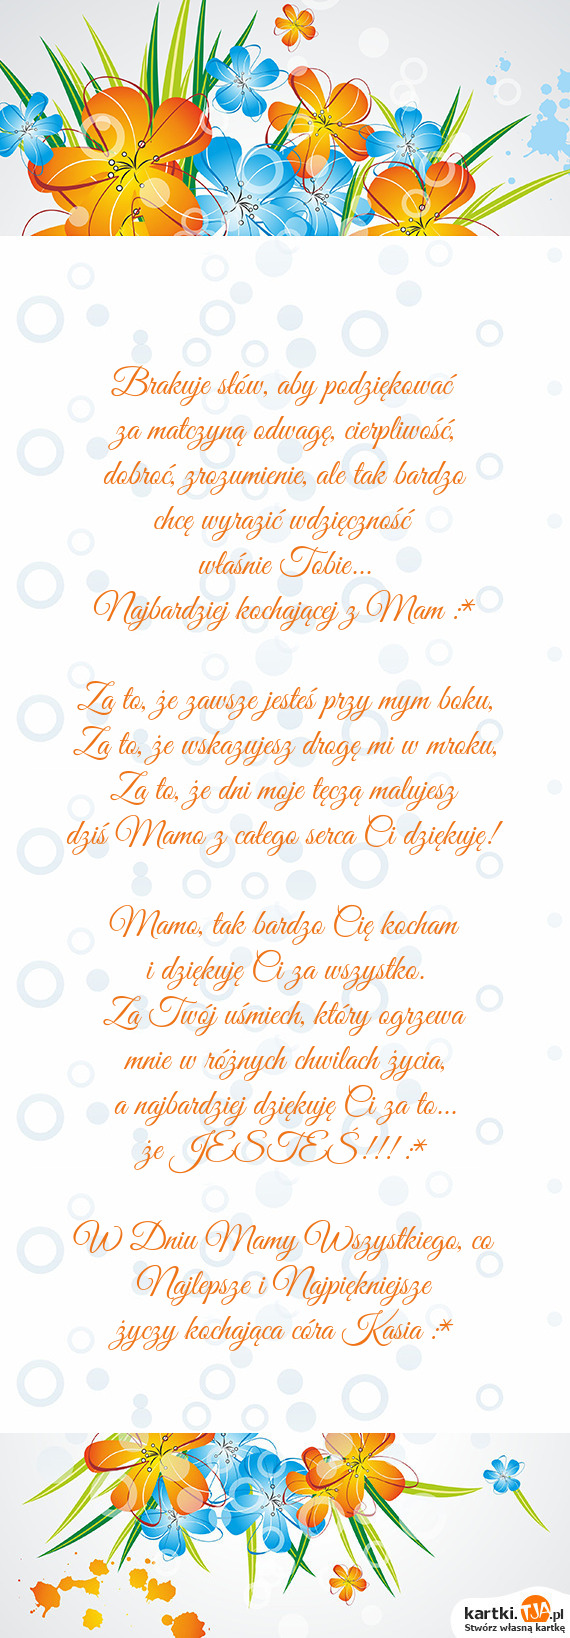 Brakuje słów, aby podziękować
za matczyną odwagę, cierpliwość,
dobroć, zrozumienie, ale tak bardzo
chcę wyrazić wdzięczność
właśnie Tobie...
Najbardziej kochającej z Mam :*
Za to, że zawsze jesteś przy mym boku,
Za to, że wskazujesz drogę mi w mroku,
Za to, że dni moje tęczą malujesz
dziś Mamo z całego serca Ci dziękuję!
Mamo, tak bardzo Cię kocham
i dziękuję Ci za wszystko.
Za Twój uśmiech, który ogrzewa
mnie w różnych chwilach życia,
a najbardziej dziękuję Ci za to...
że JESTEŚ!!! :*
W Dniu Mamy Wszystkiego, co
Najlepsze i Najpiękniejsze
życzy kochająca córa Kasia :*
kartki.TJA.pl
Stwórz własną kartkę